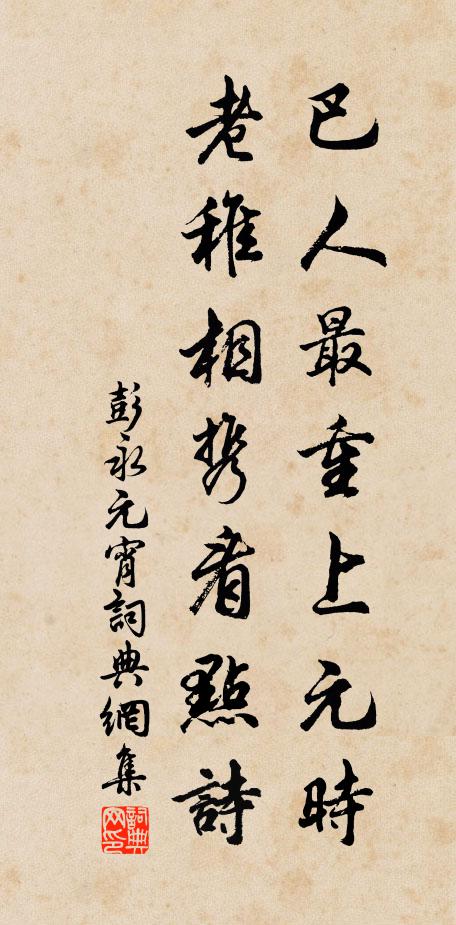 巴人最重上元時
老稚相携看點詩
彭永元宵詞典網集
詞典网印